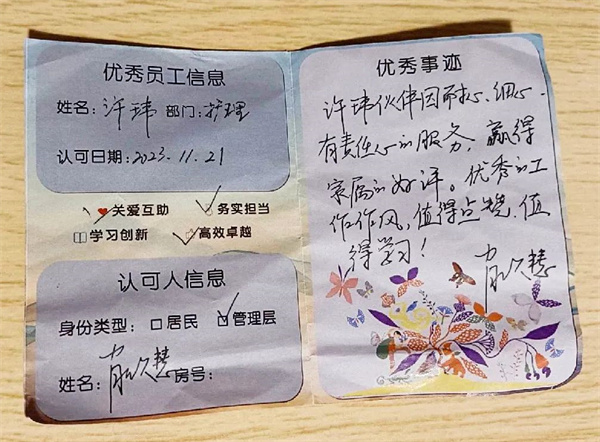 优秀员工信息
姓名：许玮 部门：护理
认可日期：2023.11.21
关爱互助 务实担当
学习创新 高效卓越
认可人信息
身份类型：居民 管理层
姓名： 久慧 房号：
优秀事迹
许玮伙伴因耐心、细心、
有责任心的服务，赢得
家属的好评。优秀的工
作作风，值得点赞，值
得学习！
久慧